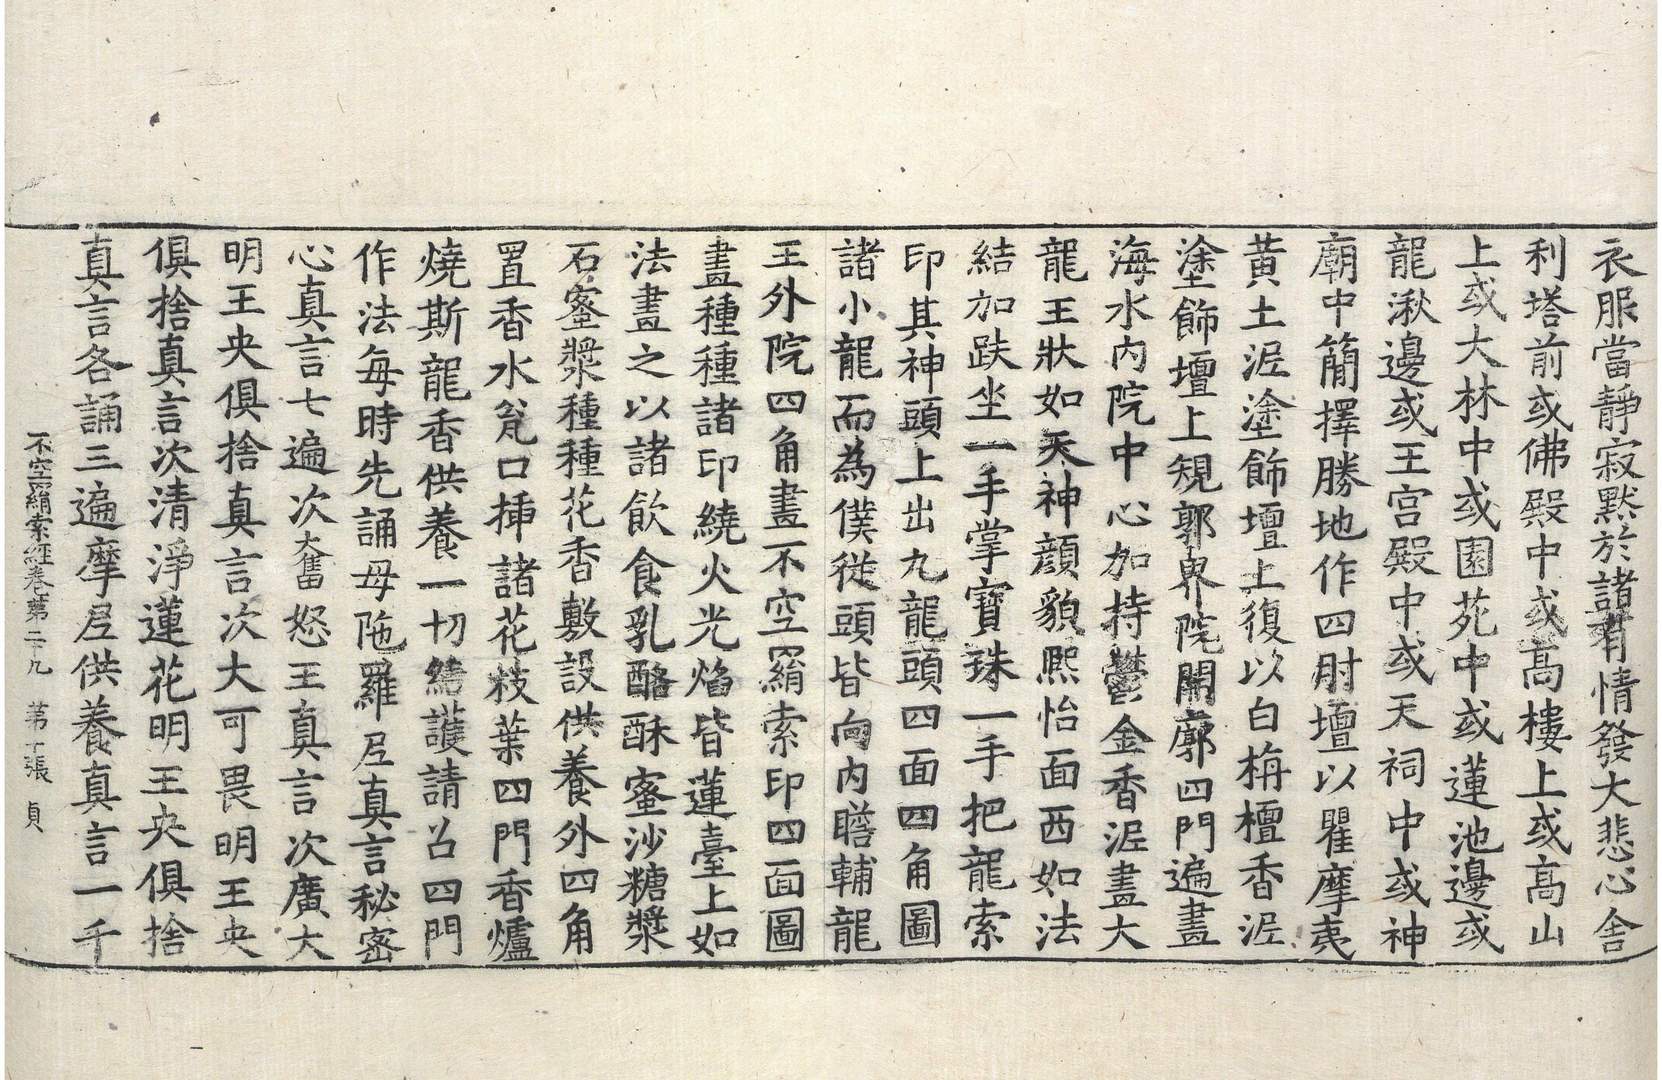 衣服當靜寂默於諸有情發大悲心舍
利塔前或佛殿中或高樓上或高山
上或大林中或園苑中或蓮池邊或
龍湫邊或王宮殿中或天祠中或神
廟中簡擇勝地作四肘壇以瞿摩夷
黃土泥塗飾壇上復以白栴檀香泥
塗飾壇上規郭界院開廓四門遍畫
海水內院中心加持鬱金香泥畫大
龍王狀如天神顔貌熙怡面西如法
結加趺坐一手掌寶珠一手把龍索
印其神頭上出九龍頭四面四角圖
諸小龍而為僕從頭皆向內瞻輔龍
王外院四角畫不空羂索印四面圖
畫種種諸印繞火光焰皆蓮臺上如
法畫之以諸飲食乳酪酥蜜沙糖漿
石蜜漿種種花香敷設供養外四角
置香水瓮口揷諸花枝葉四門香爐
燒斯龍香供養一切結護請召四門
作法每時先誦母陁羅尼真言秘密
心真言七遍次大奮怒王真言次廣大
明王央俱捨真言次大可畏明王央
俱捨真言次清淨蓮花明王央俱捨
真言各誦三遍摩尼供養真言一千
不空羂索經卷第二十九　第十張　貞